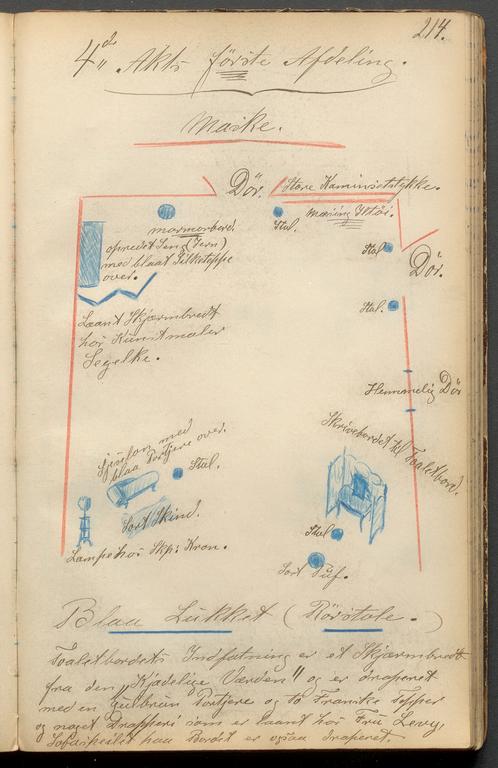 214.
4de Akts første Afdeling.
Maske.
Dör.
Store Kaminstykke.
Stol.
Stol
Dör.
marmorbord.
opredt Seng (Jern)
med blaat Silketæppe
over.
Stol.
Laant Skjærmbrædt
hos Kunstmaler
Segelke.
Hemmelig Dör
Skrivebordet til Toaletbord.
med
blaa Portiere over.
Stol.
Sort Skind.
Lampe hos Skp: Kron.
Stol
Sort Puf.
Blaa Lukket (Rörstole.)
Toaletbordets Indfatning er et Skjærmbrædt
fra den "Kjedelige Verden" og er draperet
med en gulbrun Portjere og to Franske Tepper
og noget Drapperi som er laant hos Fru Levy,
paa Bordet er ogsaa draperet.